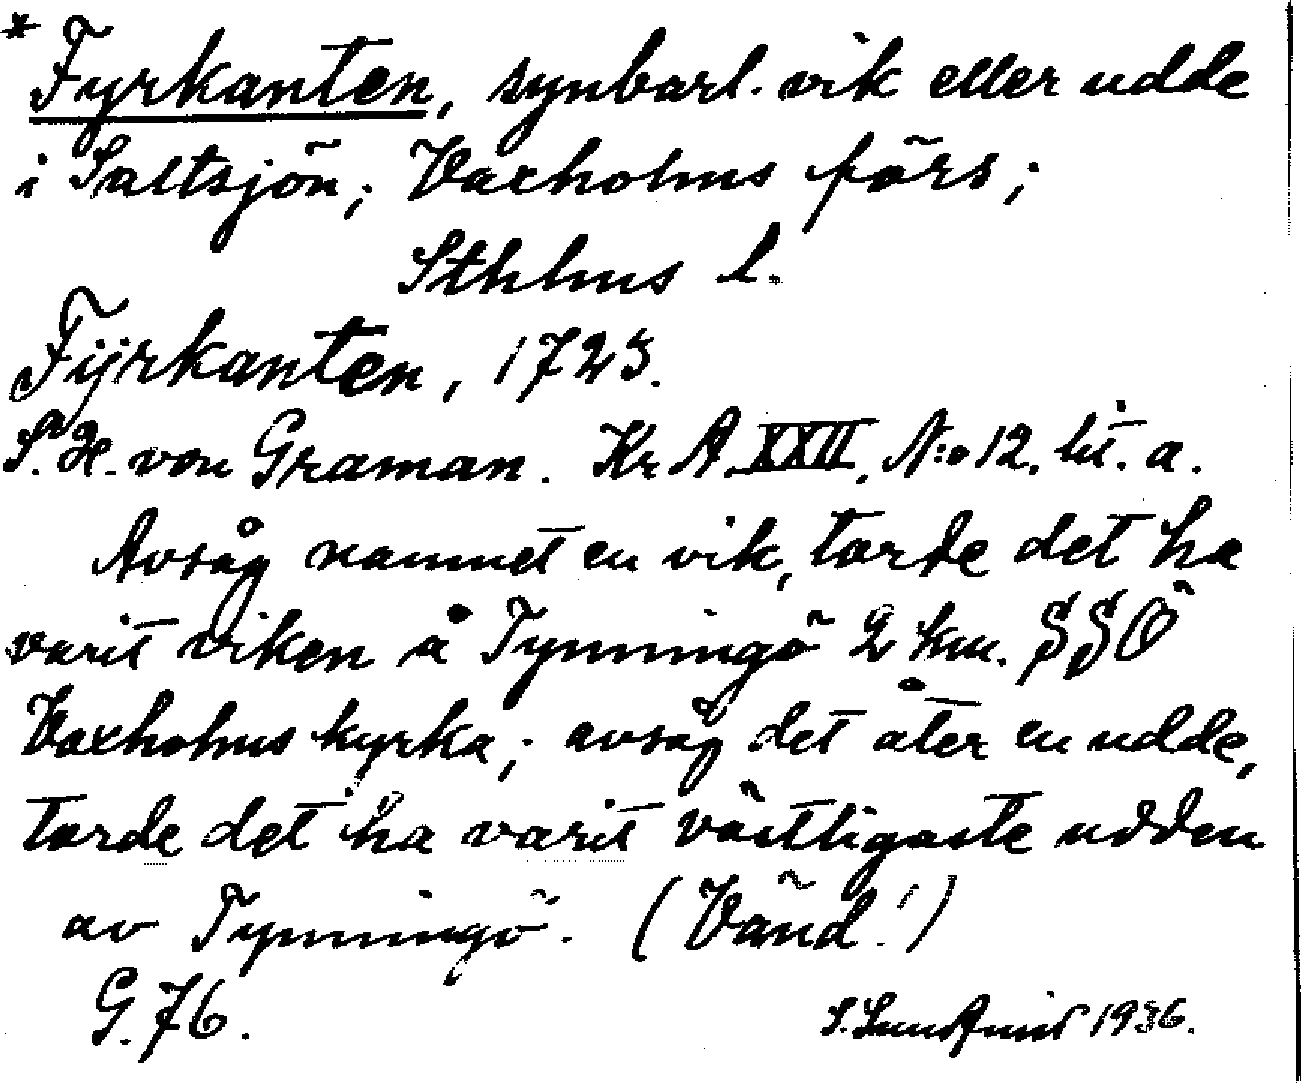 * Fyrkanten, synbarl. vik eller udde
i Saltsjön; Vaxholms förs;
Sthlms l.
Fijrkanten, 1723.
S. H. von Graman. Kr A. XXII, N:o 12. lit. a.
Avsåg namnet en vik, torde det ha
varit viken å Tynningö 2 km. SSÖ
Vaxholms kyrka; avsåg det åter en udde,
torde det ha varit västligaste udden
av Tynningö. (Vänd!)
G. 76.
S. Lundqvist 1936.